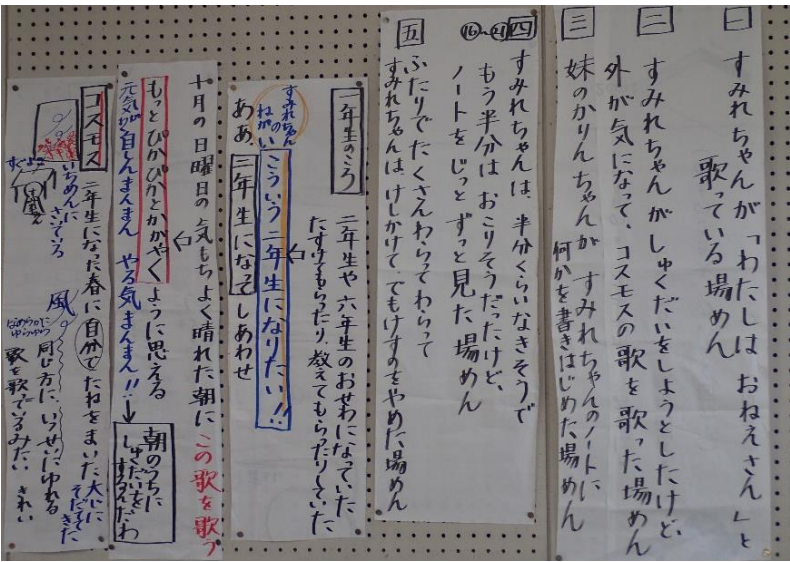 一 すみれちゃんが「わたしは おねえさん」と
歌っている場めん
二 すみれちゃんがしゅくだいをしようとしたけど、
外が気になって、コスモスの歌を歌った場めん
三 妹のかりんちゃんが すみれちゃんのノートに
何かを書きはじめた場めん
四 すみれちゃんは、半分くらいなきそうで
もう半分は おこりそうだったけど、
ノートをじっと ずっと見た場めん
五 ふたりでたくさんわらってわらって
すみれちゃんは、けしかけて、でもけすのをやめた場めん
一年生のころ 二年生や六年生のおせわになっていた
たすけてもらったり、教えてもらったりしていた
すみれちゃんのねがい
こういう 二年生になりたい!!
ああ、二年生になってしあわせ
十月の日曜日の気もちよく晴れた朝に この歌を歌う
もっと ぴかぴかとかがやくように思える
元気 自しんまんまん やる気まんまん!!
朝のうちに
コスモス 二年生になった春に自分でたねをまいた 大じにそだててきた
いちめんに
さいている
風
同じ方に、いっせいにゆれる
歌を歌っているみたい きれい